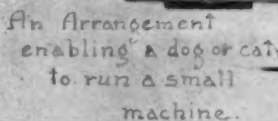 An Arrangement
enabling a dog or cat
to run a small
machine.